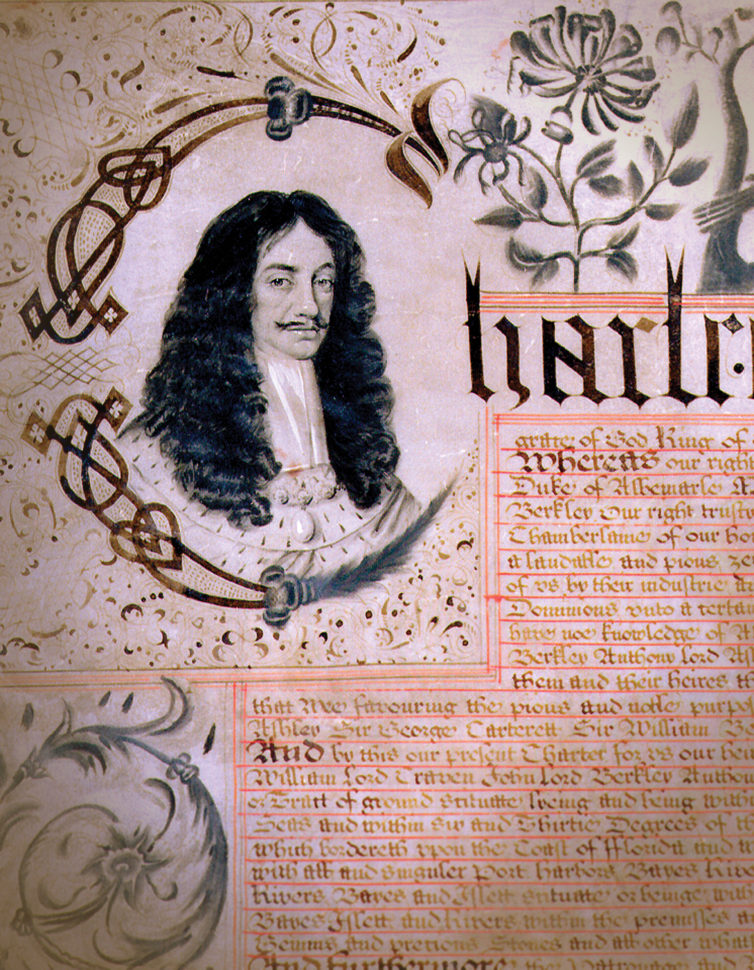 Charle
grace of God King of
Whereas our right
Duke of Albemarle
Berkley Our right trust
Chamberlaine of our ho
a laudable and pious ze
of vs by their industrie a
Dominions vnto a certai
have noe knowledge of A
Berkley Anthony lord As
them and their heires th
that Wee favouring the pious and noble purpo
Ashley Sir George Carterett Sir William Be
And by this our present Charter for vs our hei
William Lord Craven John Lord Berkley Anthon
or Tract of ground scituate lyeing and being with
Seas and within six and Thirtie Degrees of th
which bordereth vpon the Coast of fflorida and a
with all and singuler Port harbors Bayes Rive
Rivers Bayes and Islett scituate or beinge with
Bayes Islett and Rivers within the premisses a
Gemms and precious Stones and all other what
And furthermore the Patronage and